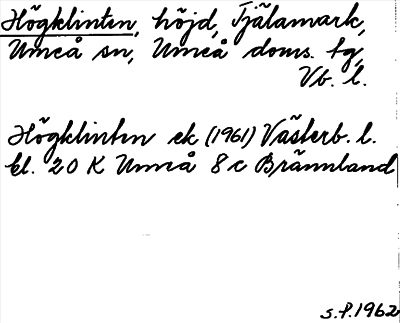 Högklinten, höjd, Tjälamark,
Umeå sn, Umeå doms. tg,
Vb. l.
Högklinten ek (1961) Västerb. l.
bl. 20 K Umeå 8 c Brännland
s.f. 1962